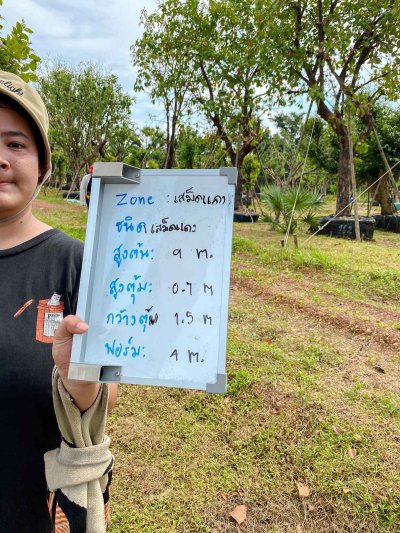 Zone : เสม็ดแดง
ชนิด เสม็ดแดง
สูงต้น: 9 m.
สูงตุ้ม: 0.7 m
กว้างตุ้ม 1.5 m
ฟอร์ม: 4 m.